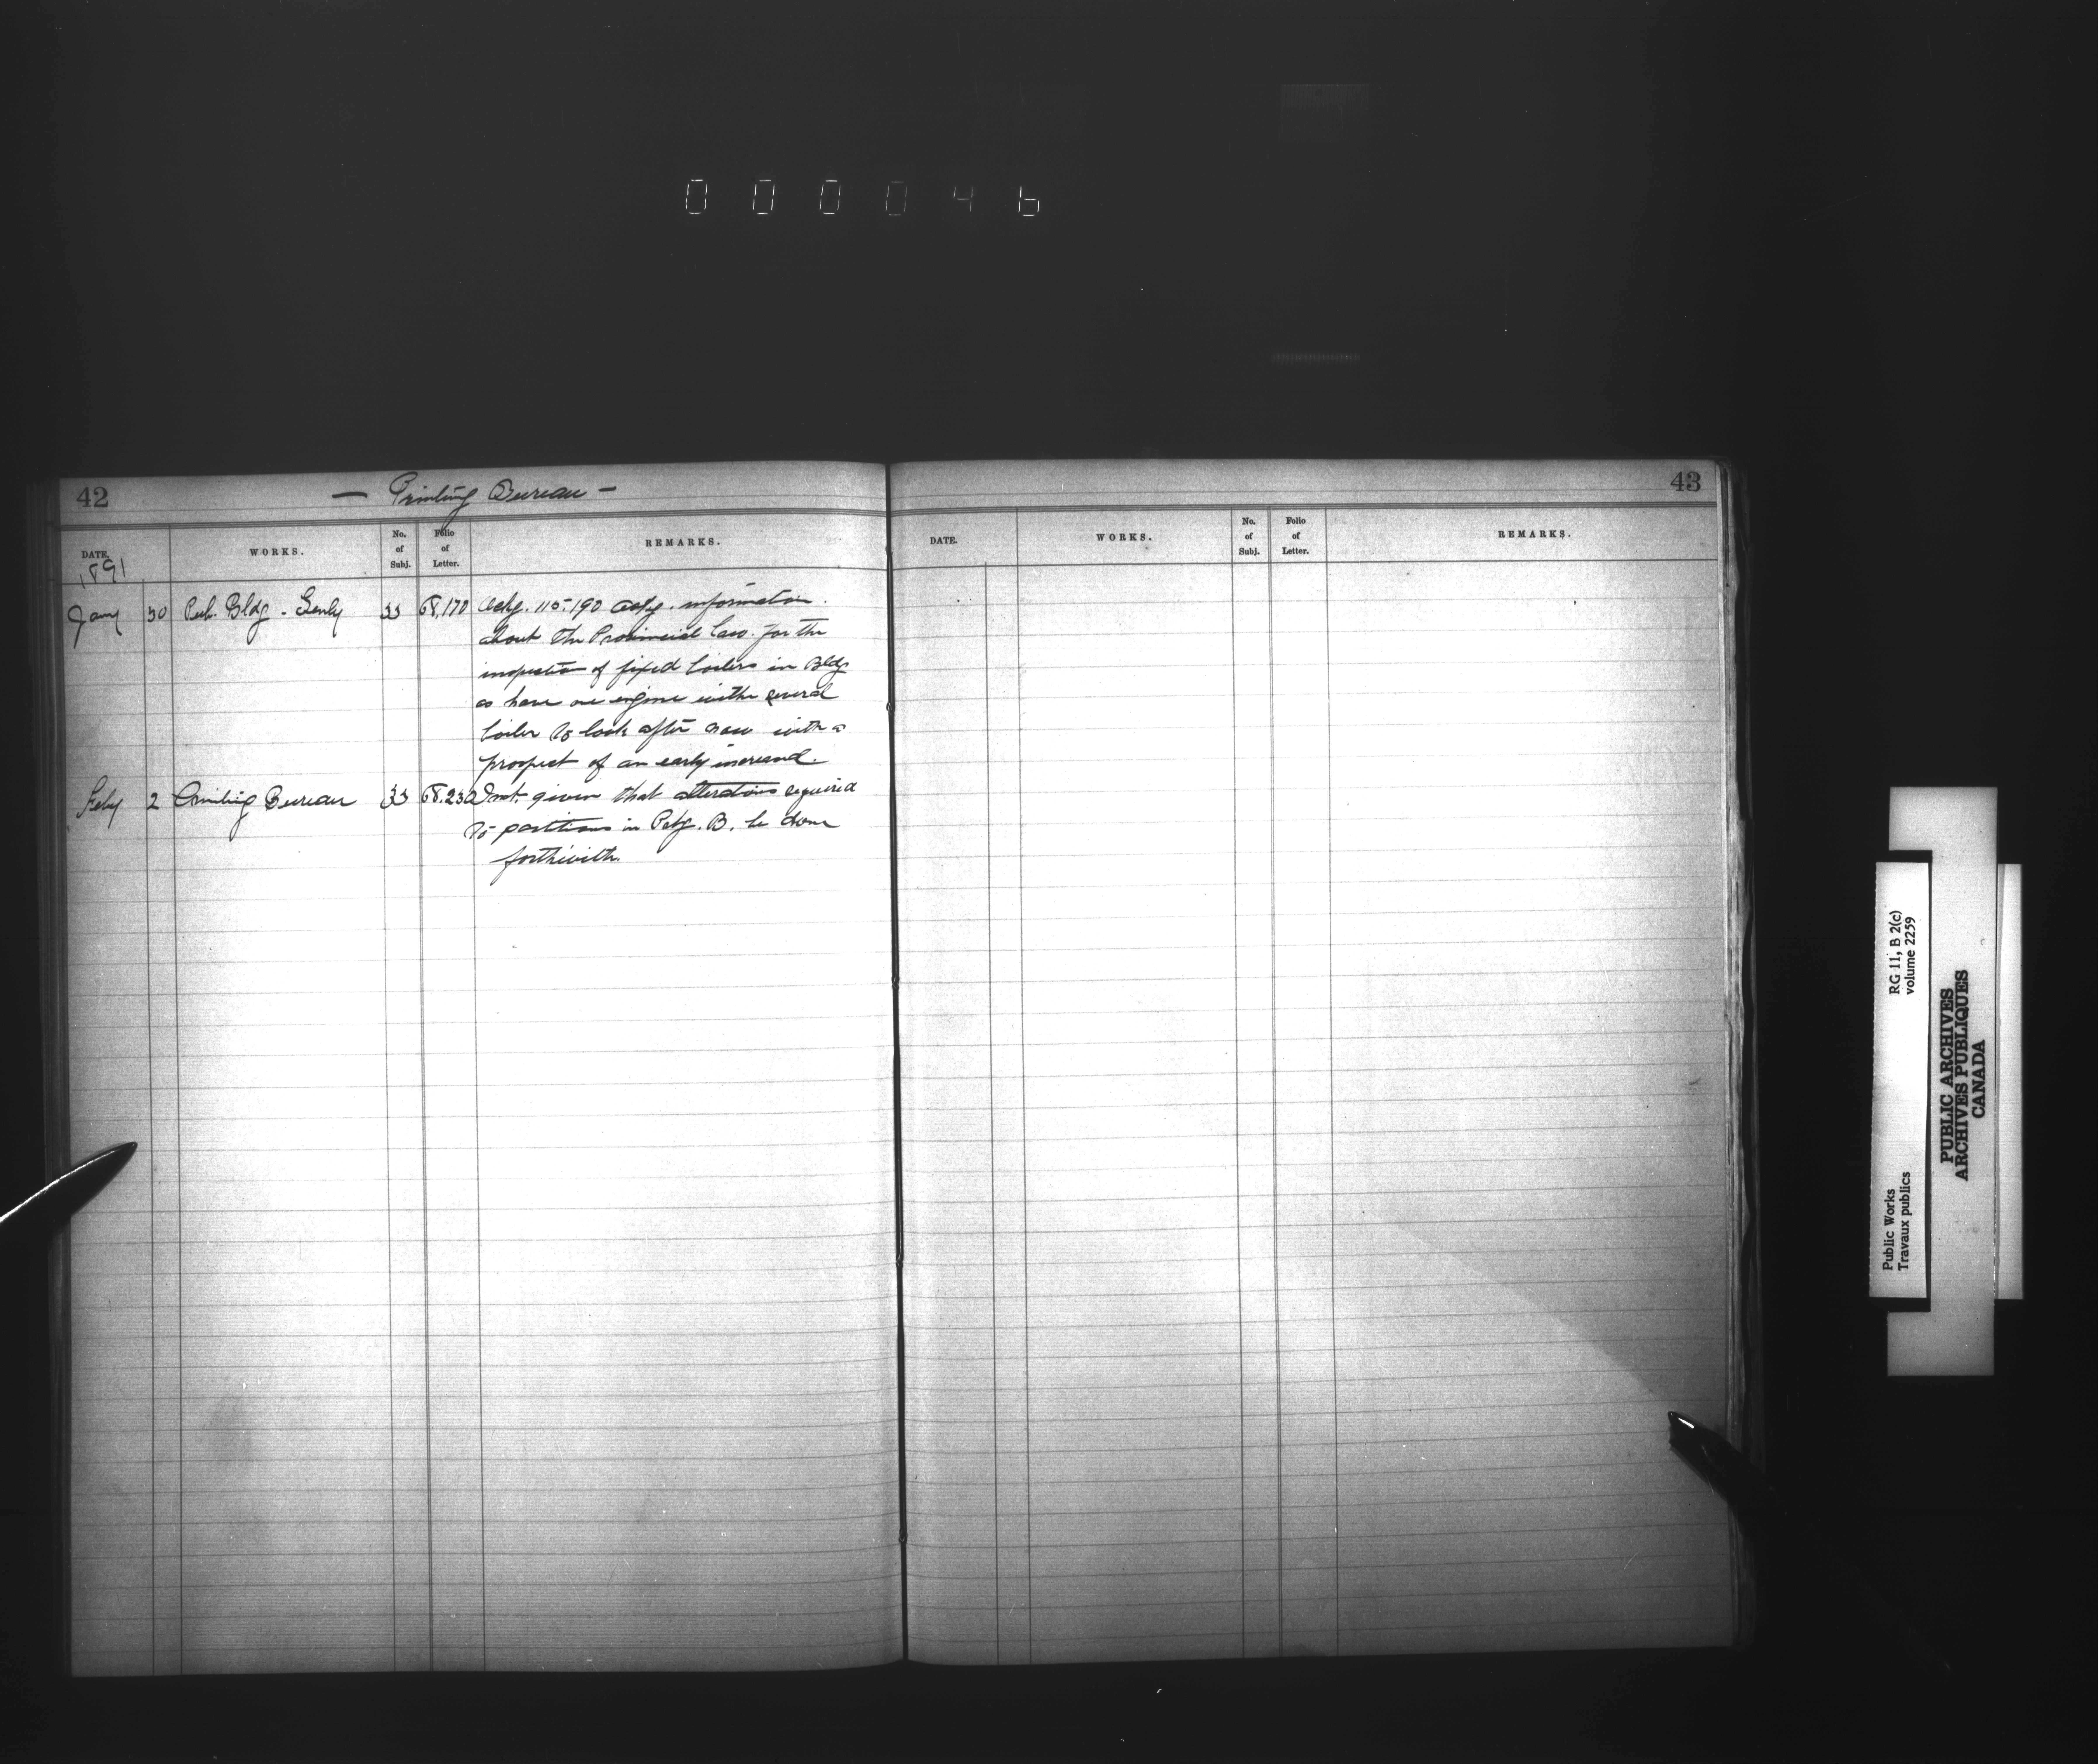 0 0 0 0 4 6
42
— Printing Bureau —
DATE. WORKS. No. of Subj. Folio of Letter. REMARKS.
1891
Jany 30 Pub. Bldg - Genly 33 68,170 Ackg. 115.190 askg. information
about the Provincial law for the
inspection of fixed boilers in Bldg
as have one engine with several
boiler to look after now with a
prospect of an early increase.
Feby 2 Printing Bureau 33 68.230 Inst. given that alterations required
to partitions in Petg. B. be done
forthwith.
43
DATE. WORKS. No. of Subj. Folio of Letter. REMARKS.
RG 11, B 2(c)
volume 2259
Public Works
Travaux publics
PUBLIC ARCHIVES
ARCHIVES PUBLIQUES
CANADA